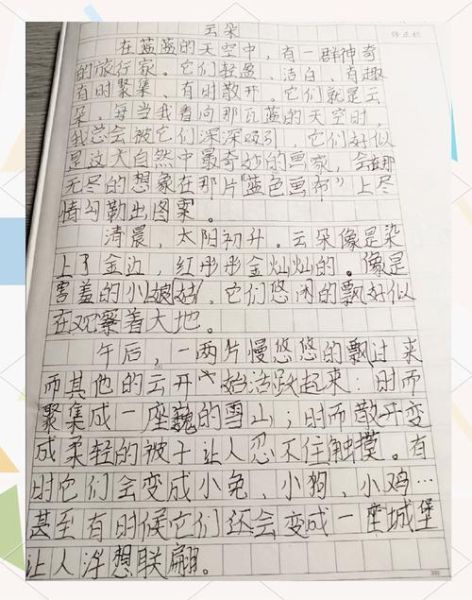 云朵
在蓝蓝的天空中，有一群神奇
的旅行家。它们轻盈、洁白、有趣
有时聚集、有时散开。它们就是云
朵，每当我看向那瓦蓝的天空时，
我总会被它们深深吸引，它们好似
是这大自然中最奇妙的画家，会把那
无尽的想象在那片“蓝色画布”上尽
情勾勒出图案。
清晨，太阳初升。云朵像是染
上了金边，红彤彤金灿灿的。像是
害羞的小姑娘，它们悠闲的飘好似
在观察着大地。
午后，一两片慢悠悠的飘过来
而其他的云开始活跃起来：时而
聚集成一座巍的雪山；时而散开变
成柔轻的被子让人忍不住触摸。有
时它们会变成小兔、小狗、小鸡…
甚至有时候它们还会变成一座城堡
让人浮想联翩。